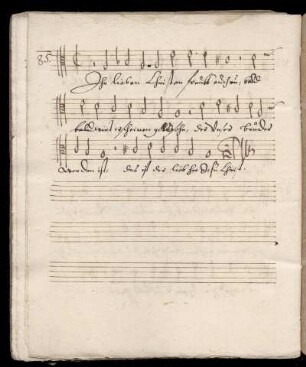 85.
Ihr lieben Christen freudt euch nun, bald
bald wirt erscheinen gottes Sohn, der unser bruder
worden ist das ist der lieb her Jesu Christ.